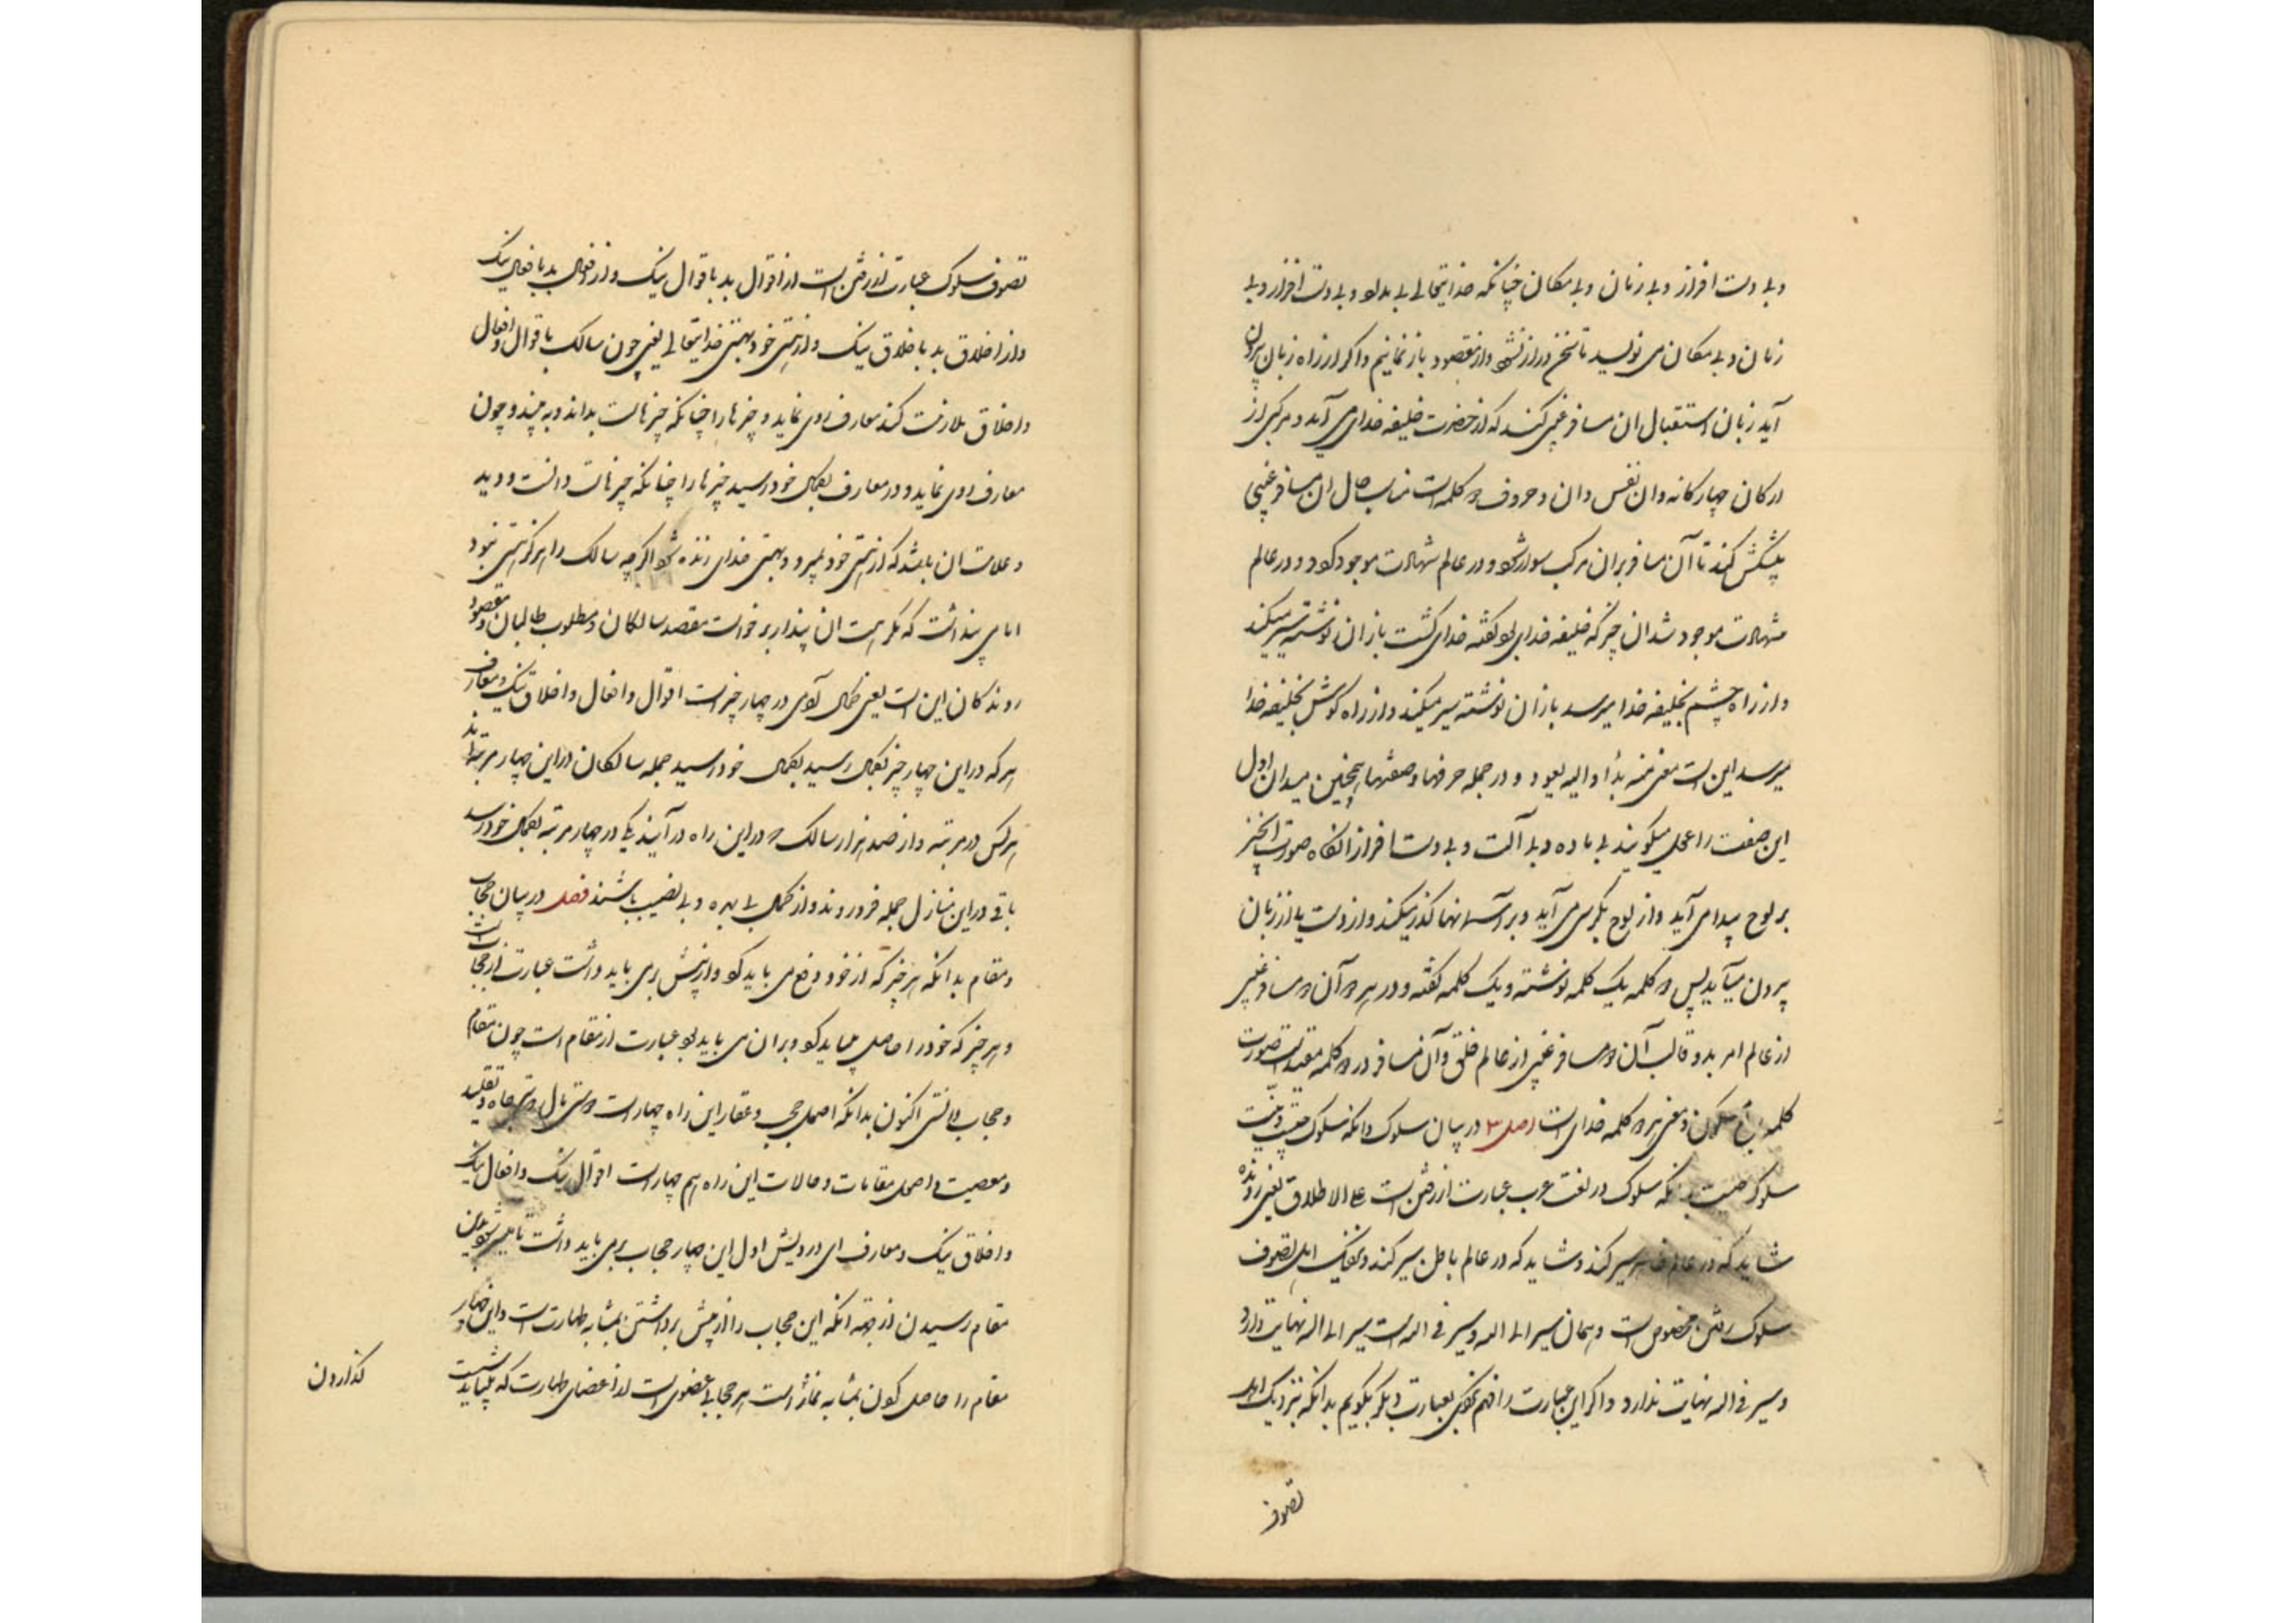 وبی دست افزار وبی زمان وبی مکان چنانکه خدایتعالی بی بدلو وبی دست افزار وبی
زمان وبی مکان می نویسد تا سخن دراز نشود واز مقصود باز نمانیم واکر از راه زبان بیرون
آید زبان استقبال ان مسافر غیبی کند که از حضرت خلیفه خدای می آید ومرکبی از
ارکان چهارکانه وان نفس وان وحروف و کلمه است مناسب حال ان مسافر غیبی
پیشکش کند تا آن مسافر بران مرکب سوار شود ودر عالم شهادت موجود کردد ودر عالم
شهادت موجود شد ان چیز که خلیفه خدای بود کفته خدای کشت باز ان نوشته سیر میکند
واز راه چشم بخلیفه خدا میرسد باز ان نوشته سیر میکند واز راه کوش بخلیفه خدا
میرسد این است معنی منه بدأ والیه یعود ودر جمله حرفها وصفتها همچنین میدان اول
این صفت را عمل میکویند بی ماده وبی آلت وبی دست افزار انکاه صورت انچیز
بر لوح پیدا می آید واز لوح بکرسی می آید وبر آسمانها کذر میکند واز دست یا از زبان
بیرون میآید پس دو کلمه یک کلمه نوشته ویک کلمه کفته ودر هر دو آن دو مسافر غیبی
از عالم امر بدو قالب آن دو مسافر غیبی از عالم خلق وآن مسافر در دو کلمه مقید بصورت
کلمه ومعنی هر دو کلمه خدای است اصل ۳ در بیان سلوک وانکه سلوک چیست ونیت
سلوک چیست بدانکه سلوک در لغت عرب عبارت از رفتن است علی الاطلاق یعنی رونده
شاید که در عالم ظاهر سیر کند وشاید که در عالم باطن سیر کند وبنزدیک اهل تصوف
سلوک رفتن مخصوص است وهمان سیر الی اله وسیر فی اله است سیر الی اله نهایت دارد
وسیر فی اله نهایت ندارد واکر این عبارت را فهم نکنی بعبارت دیکر بکویم بدانکه بنزدیک اهل
تصوف
تصوف سلوک عبارت از رفتن است از اقوال بد باقوال نیک واز افعال بد بافعال نیک
واز اخلاق بد باخلاق نیک واز هستی خود بهستی خدایتعالی یعنی چون سالک باقوال وافعال
واخلاق ملازمت کند معارف روی نماید وچیزها را چنانکه چیزهاست بداند وبه بیند وچون
معارف روی نماید ودر معارف بکمال خود رسید چیزها را چنانکه چیزهاست دانست ودید
وعلامت ان باشد که از هستی خود بمیرد وبهستی خدای زنده شود اکرچه سالک را هرکز هستی نبود
اما می پنداشت که مکر هست ان پندار برخواست مقصد سالکان ومطلوب طالبان ومقصود
روندکان این است یعنی کمال آدمی در چهار چیز است اقوال وافعال واخلاق نیک ومعارف
هر که در این چهار چیز بکمال رسید بکمال خود رسید جمله سالکان در این چهار مرتبه اند
هر کس در مرتبه واز صد هزار سالک که در این راه در آیند یکی در چهار مرتبه بکمال خود رسد
باقی در این منازل جمله فرو روند واز کمال بی بهره وبی نصیب باشند فصل در بیان حجاب
ومقام بدانکه هر چیز که از خود دفع می باید کرد واز پیش برمی باید داشت عبارت از حجاب است
وهر چیز که خود را حاصل میباید کرد وبران می باید بود عبارت از مقام است چون مقام
وحجاب دانستی اکنون بدانکه اصل حجب وعقاب این راه چهار است دوستی مال دوستی جاه وتقلید
ومعصیت واصل مقامات وحالات این راه هم چهار است اقوال نیک وافعال نیک
واخلاق نیک ومعارف ای درویش اول این چهار حجاب برمی باید داشت تا میسر شود باین
مقام رسیدن از جهة آنکه این حجاب را از پیش برداشتن بمثابه طهارت است واین چهار
مقام را حاصل کردن بمثابه نماز است هر حجابی عضوی است از اعضای طهارت که میباید شست
کذاردن